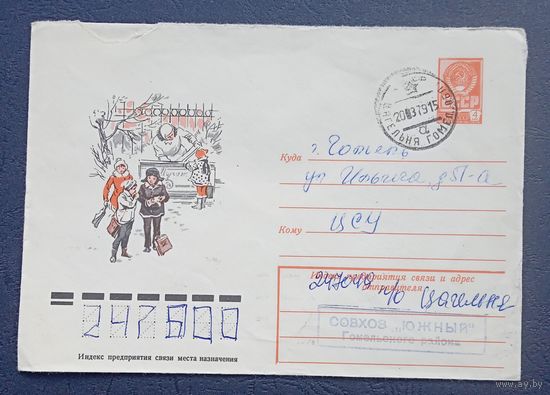 СССР
4
20 03 79 15
Куда г. Гомель
ул Ильича, д 51-а
Кому ЦСУ
Индекс предприятия связи и адрес
отправителя
п/о Цагельня
СОВХОЗ „ЮЖНЫЙ"
Гомельского района
247600
Индекс предприятия связи места назначения
www.ay.by